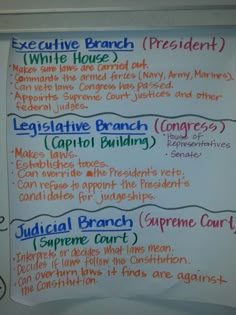 Executive Branch (President)
(White House)
• Makes sure laws are carried out.
• Commands the armed forces (Navy, Army, Marines).
• Can veto laws Congress has passed.
• Appoints Supreme Court justices and other
federal judges.
Legislative Branch (Congress)
(Capitol Building)
• House of
Representatives
• Senate
• Makes laws.
• Establishes taxes.
• Can override the President's veto.
• Can refuse to appoint the President's
candidates for judgeships.
Judicial Branch (Supreme Court)
(Supreme Court)
• Interprets or decides what laws mean.
• Decides if laws follow the Constitution.
• Can overturn laws it finds are against
the Constitution.